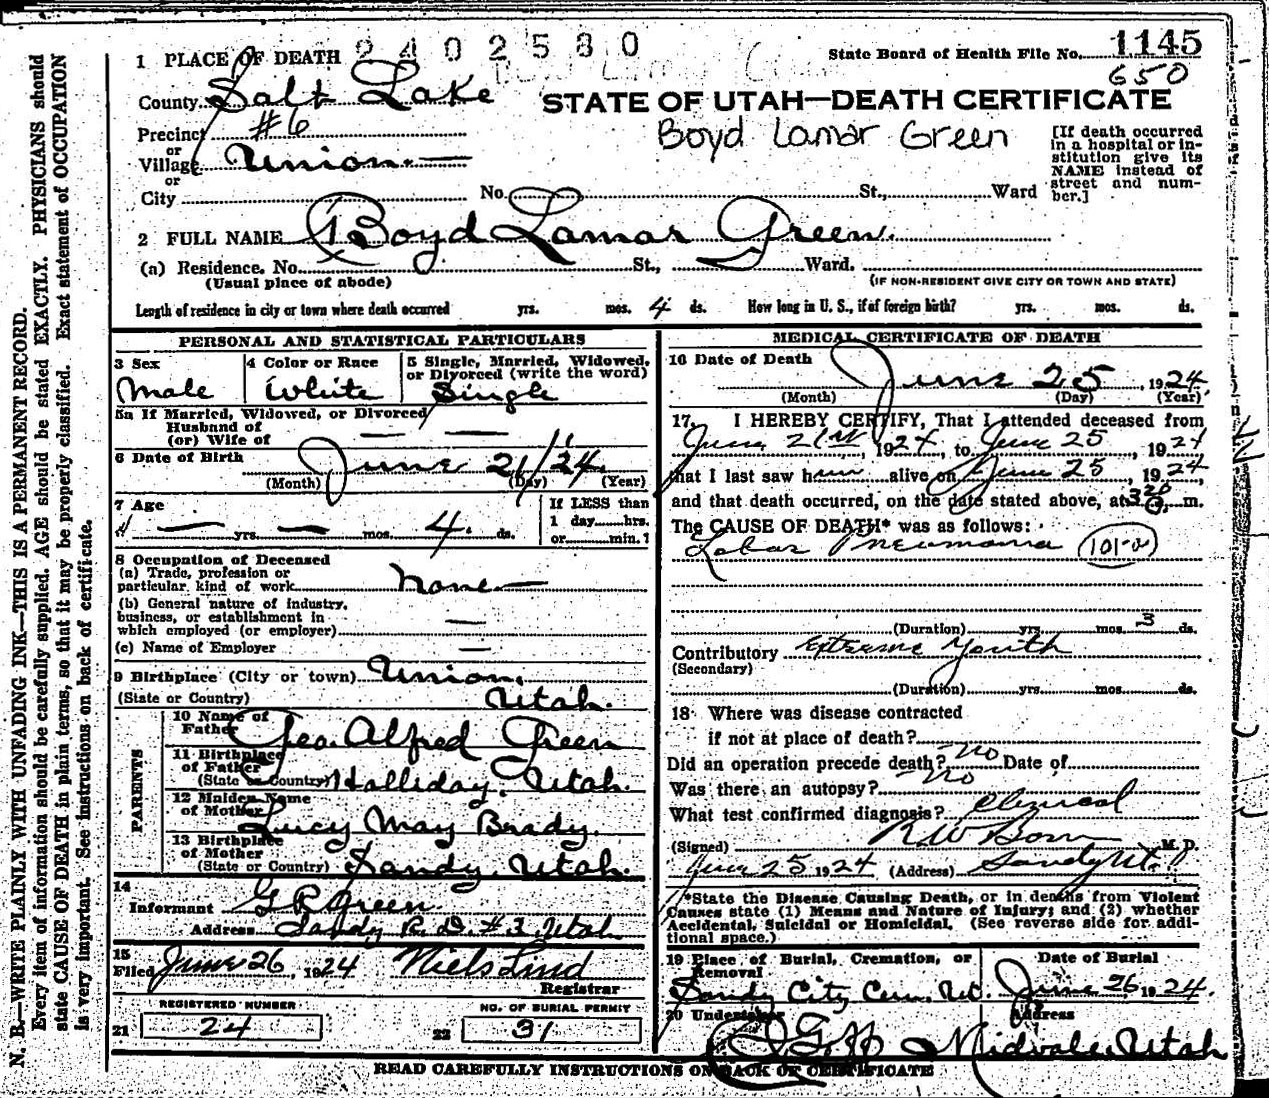 2402580
State Board of Health File No. 1145
650
1 PLACE OF DEATH
County Salt Lake
STATE OF UTAH—DEATH CERTIFICATE
Precinct #6
or
Village Union
or
City No. St., Ward
Boyd Lamar Green
[If death occurred
in a hospital or in-
stitution give its
NAME instead of
street and num-
ber.]
2 FULL NAME Boyd Lamar Green.
(a) Residence. No. St., Ward.
(Usual place of abode) (IF NON-RESIDENT GIVE CITY OR TOWN AND STATE)
Length of residence in city or town where death occurred yrs. mos. 4 ds. How long in U. S., if of foreign birth? yrs. mos. ds.
PERSONAL AND STATISTICAL PARTICULARS
3 Sex
Male
4 Color or Race
White
5 Single, Married, Widowed,
or Divorced (write the word)
Single
5a If Married, Widowed, or Divorced
Husband of
(or) Wife of
6 Date of Birth
June 21/24
(Month) (Day) (Year)
7 Age
— yrs. — mos. 4. ds.
If LESS than
1 day hrs.
or min.?
8 Occupation of Deceased
(a) Trade, profession or
particular kind of work None
(b) General nature of industry,
business, or establishment in
which employed (or employer) —
(c) Name of Employer —
9 Birthplace (City or town) Union,
(State or Country) Utah.
PARENTS
10 Name of
Father Geo. Alfred Green
11 Birthplace
of Father
(State or Country) Halliday, Utah.
12 Maiden Name
of Mother Lucy May Brady.
13 Birthplace
of Mother
(State or Country) Sandy, Utah.
14
Informant G R Green.
Address Sandy R. D. #3 Utah
15
Filed June 26, 1924 Niels Lind
Registrar
REGISTERED NUMBER
21 24
NO. OF BURIAL PERMIT
22 31
MEDICAL CERTIFICATE OF DEATH
16 Date of Death
June 25, 1924
(Month) (Day) (Year)
17. I HEREBY CERTIFY, That I attended deceased from
June 21st, 1924, to June 25, 1924
that I last saw him alive on June 25, 1924,
and that death occurred, on the date stated above, at 320 m.
The CAUSE OF DEATH* was as follows:
Lobar Pneumonia
(Duration) yrs. mos. 3 ds.
Contributory Extreme Youth
(Secondary)
(Duration) yrs. mos. ds.
18 Where was disease contracted
if not at place of death?
Did an operation precede death? no Date of
Was there an autopsy? no
What test confirmed diagnosis? Clinical
(Signed) M. D.
June 25 1924 (Address) Sandy Ut.
*State the Disease Causing Death, or in deaths from Violent
Causes state (1) Means and Nature of Injury; and (2) whether
Accidental, Suicidal or Homicidal. (See reverse side for addi-
tional space.)
19 Place of Burial, Cremation, or
Removal
Sandy City Cem. Ut.
Date of Burial
June 26, 1924.
20 Undertaker
Address
Midvale, Utah
READ CAREFULLY INSTRUCTIONS ON BACK OF CERTIFICATE
N. B.—WRITE PLAINLY WITH UNFADING INK—THIS IS A PERMANENT RECORD.
Every item of information should be carefully supplied. AGE should be stated EXACTLY. PHYSICIANS should
state CAUSE OF DEATH in plain terms, so that it may be properly classified. Exact statement of OCCUPATION
is very important. See instructions on back of certificate.